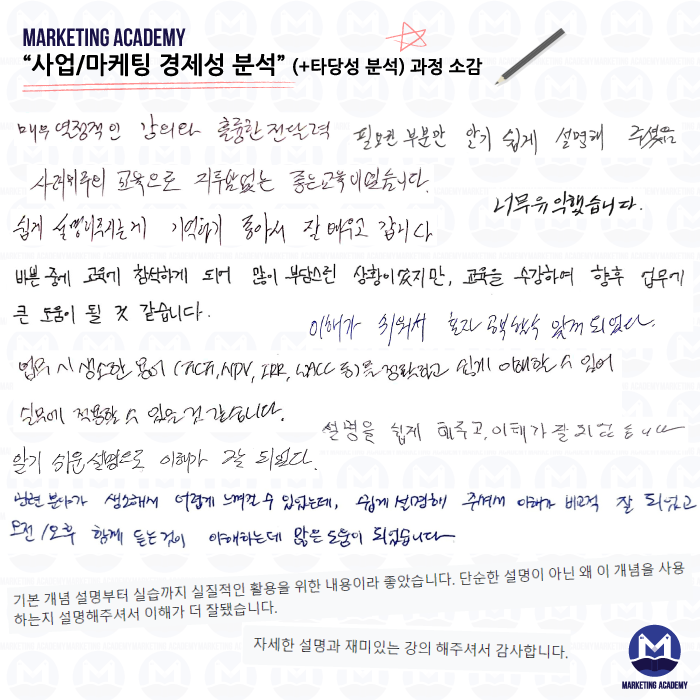 MARKETING ACADEMY
“사업/마케팅 경제성 분석” (+타당성 분석) 과정 소감
매우 열정적인 강의와 훌륭한 전달력
필요한 부분만 알기 쉽게 설명해 주셨음
사례위주의 교육으로 지루함없는 좋은교육이었습니다.
너무 유익했습니다.
쉽게 설명해주시는게 기억하기 좋아서 잘 배우고 갑니다
바쁜 중에 교육에 참석하게 되어 많이 부담스런 상황이었지만, 교육을 수강하여 향후 업무에
큰 도움이 될 것 같습니다.
이해가 쉬워서 혼자 공부할수 있게 되었다.
업무 시 생소한 용어 (FCF, NPV, IRR, WACC 등)를 정확하고 쉽게 이해할 수 있어
실무에 적용할 수 있을 것 같습니다.
설명을 쉽게 해주고, 이해가 잘 되었습니다
알기 쉬운 설명으로 이해가 잘 되었다.
관련 분야가 생소해서 어렵게 느껴질 수 있었는데, 쉽게 설명해 주셔서 이해가 비교적 잘 되었고
오전/오후 함께 듣는 것이 이해하는데 많은 도움이 되었습니다
기본 개념 설명부터 실습까지 실질적인 활용을 위한 내용이라 좋았습니다. 단순한 설명이 아닌 왜 이 개념을 사용
하는지 설명해주셔서 이해가 더 잘됐습니다.
자세한 설명과 재미있는 강의 해주셔서 감사합니다.
MARKETING ACADEMY